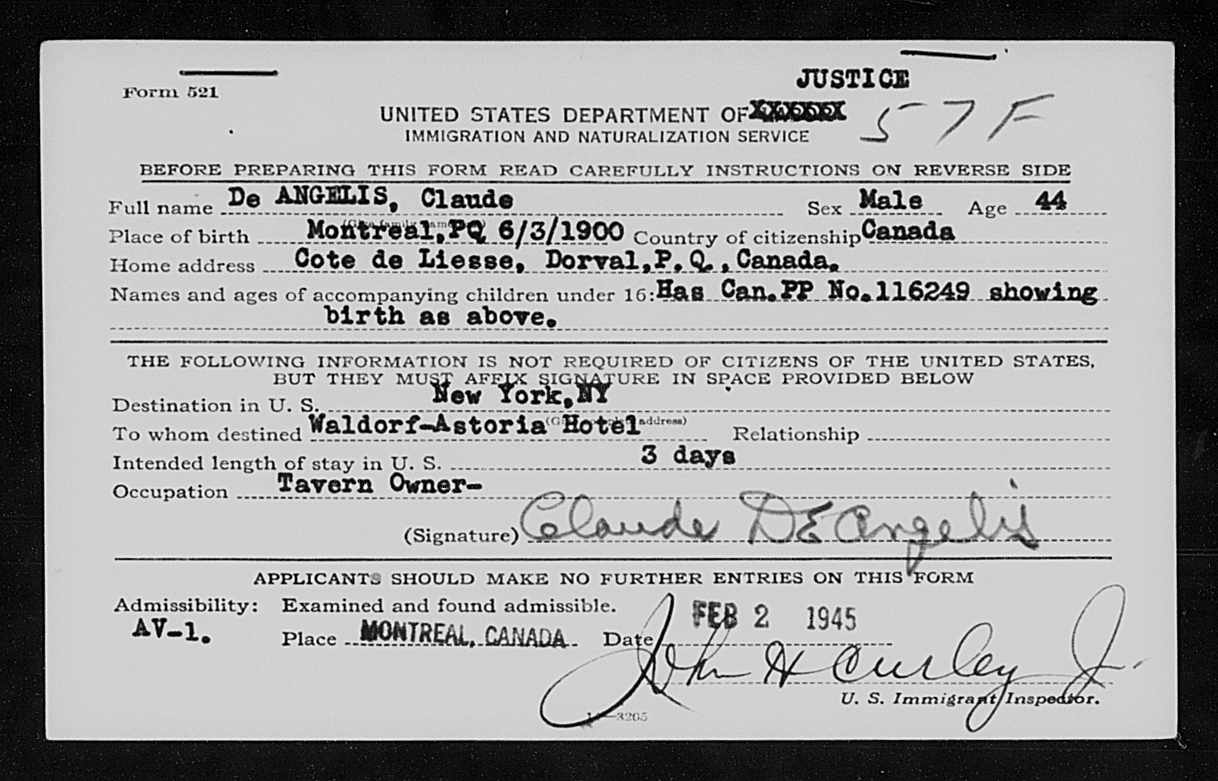 JUSTICE
Form 521
UNITED STATES DEPARTMENT OF XXXXXX
57F
IMMIGRATION AND NATURALIZATION SERVICE
BEFORE PREPARING THIS FORM READ CAREFULLY INSTRUCTIONS ON REVERSE SIDE
Full name De ANGELIS, Claude Sex Male Age 44
Place of birth Montreal, PQ 6/3/1900 Country of citizenship Canada
Home address Cote de Liesse, Dorval, P.Q., Canada.
Names and ages of accompanying children under 16: Has Can. PP No. 116249 showing
birth as above.
THE FOLLOWING INFORMATION IS NOT REQUIRED OF CITIZENS OF THE UNITED STATES,
BUT THEY MUST AFFIX SIGNATURE IN SPACE PROVIDED BELOW
Destination in U. S. New York, NY
To whom destined Waldorf-Astoria Hotel address) Relationship
Intended length of stay in U. S. 3 days
Occupation Tavern Owner-
(Signature) Claude DeAngelis
APPLICANTS SHOULD MAKE NO FURTHER ENTRIES ON THIS FORM
Admissibility: Examined and found admissible.
AV-1. Place MONTREAL, CANADA Date FEB 2 1945
John H Curley Jr.
U. S. Immigrant Inspector.
3205